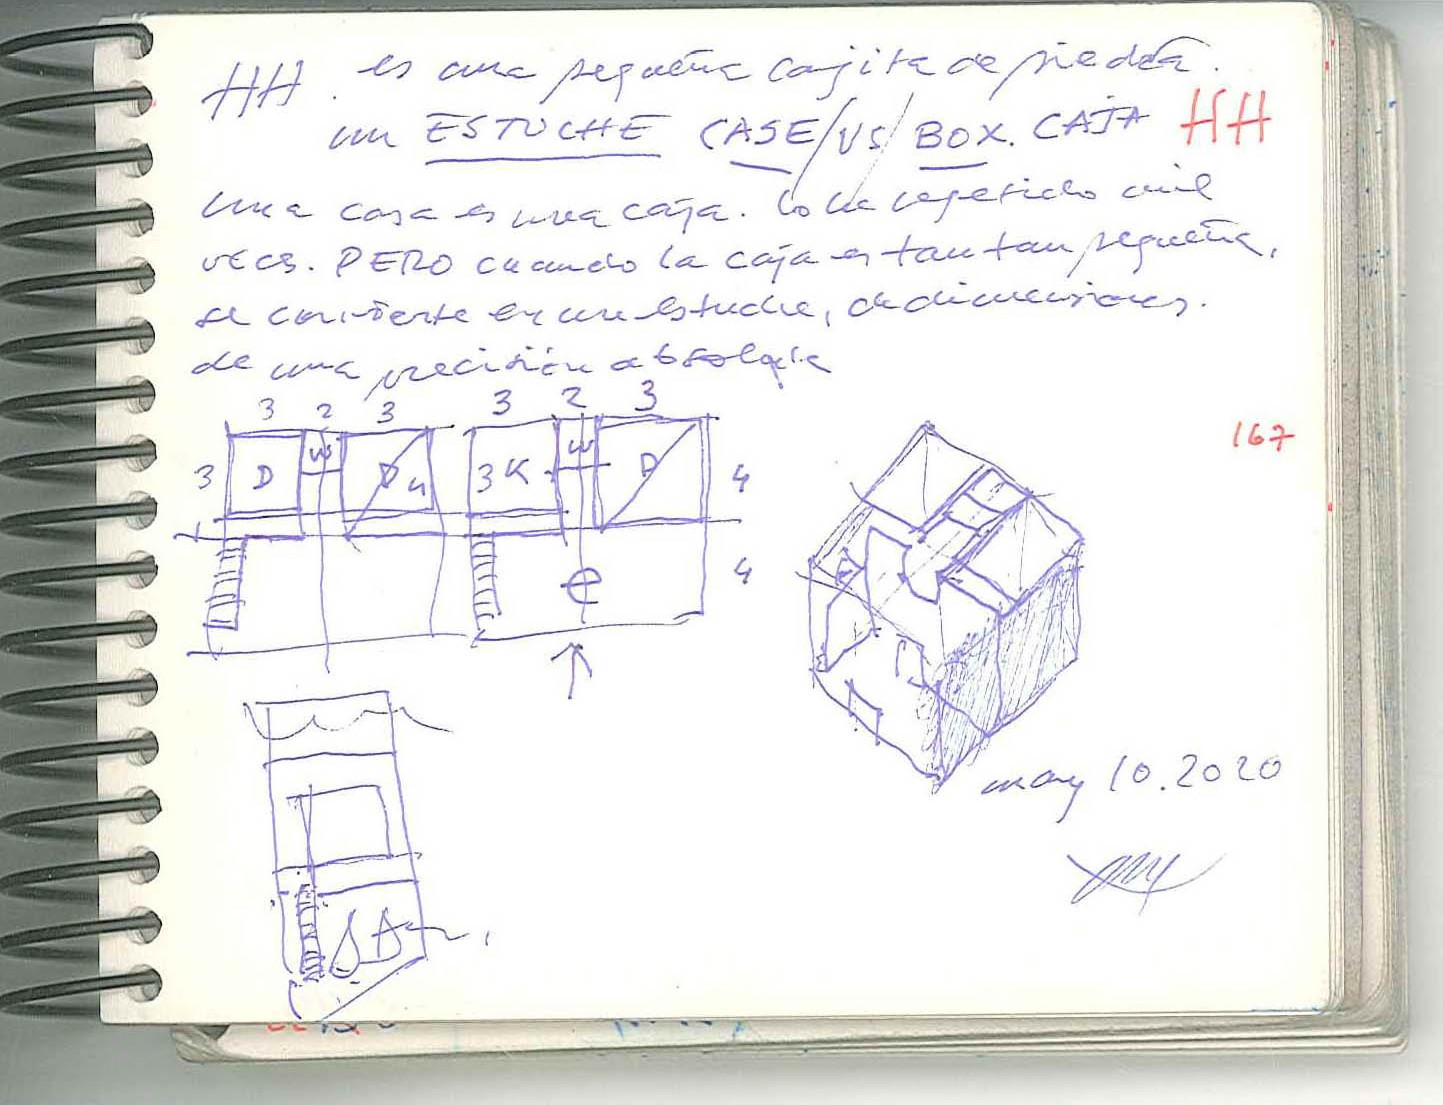 HH. es una pequeña cajita de piedra.
un ESTUCHE CASE/VS/BOX. CAJA HH
una casa es una caja. Lo he repetido mil
veces. PERO cuando la caja es tan tan pequeña,
se convierte en un estuche, de dimensiones.
de una precisión absoluta
3 2 3 3 2 3
167
3 D W D 4 3 K W D 4
e 4
may 10.2020